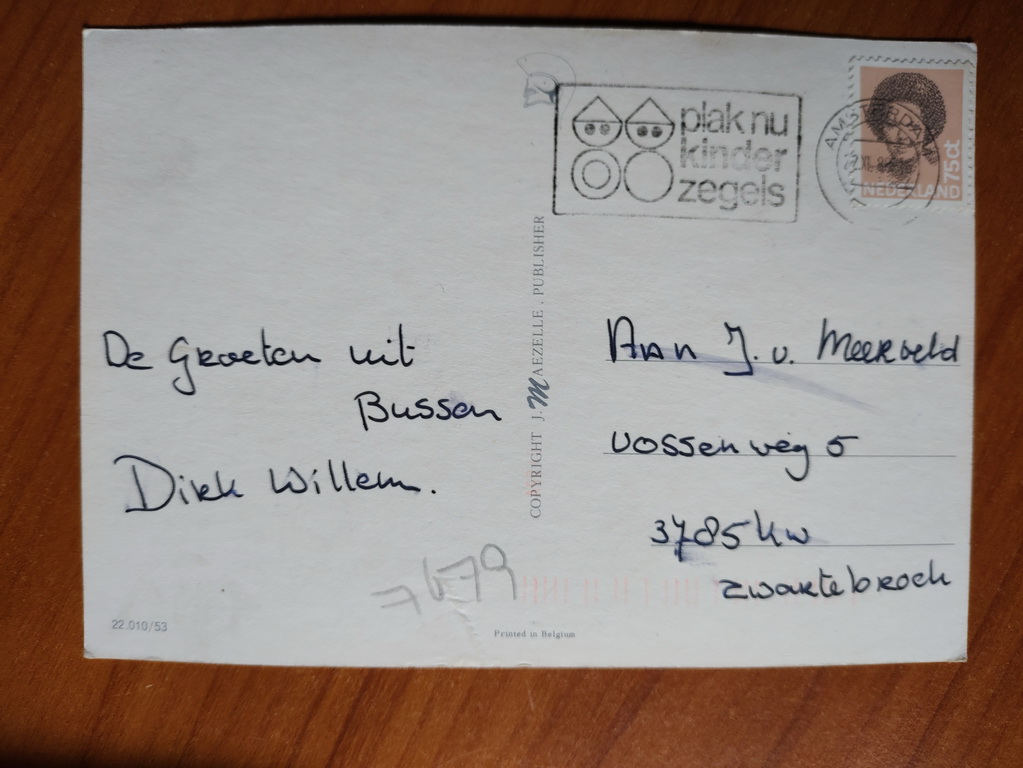 plak nu
kinder
zegels
AMSTERDAM
NEDERLAND 75ct
De Groeten uit
Bussen
Dirk Willem.
COPYRIGHT J. MAEZELLE . PUBLISHER
Aan J. v. Meerveld
vossenweg 5
3785 kw
zwartebroek
22.010/53
Printed in Belgium